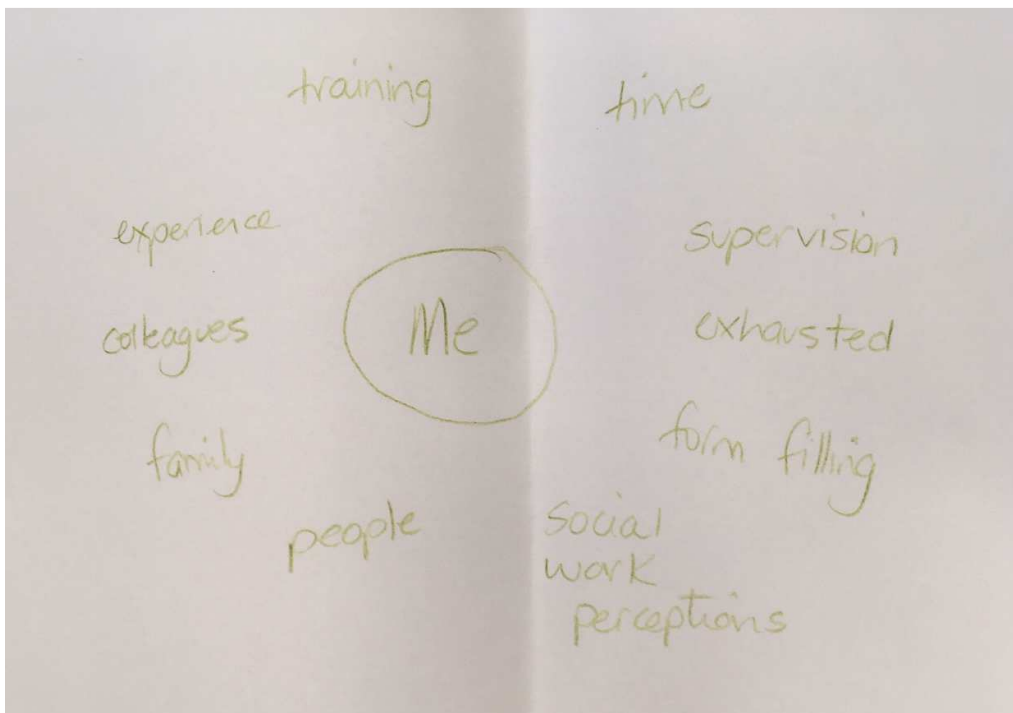 training time
experience supervision
colleagues Me exhausted
family form filling
people social
work
perceptions